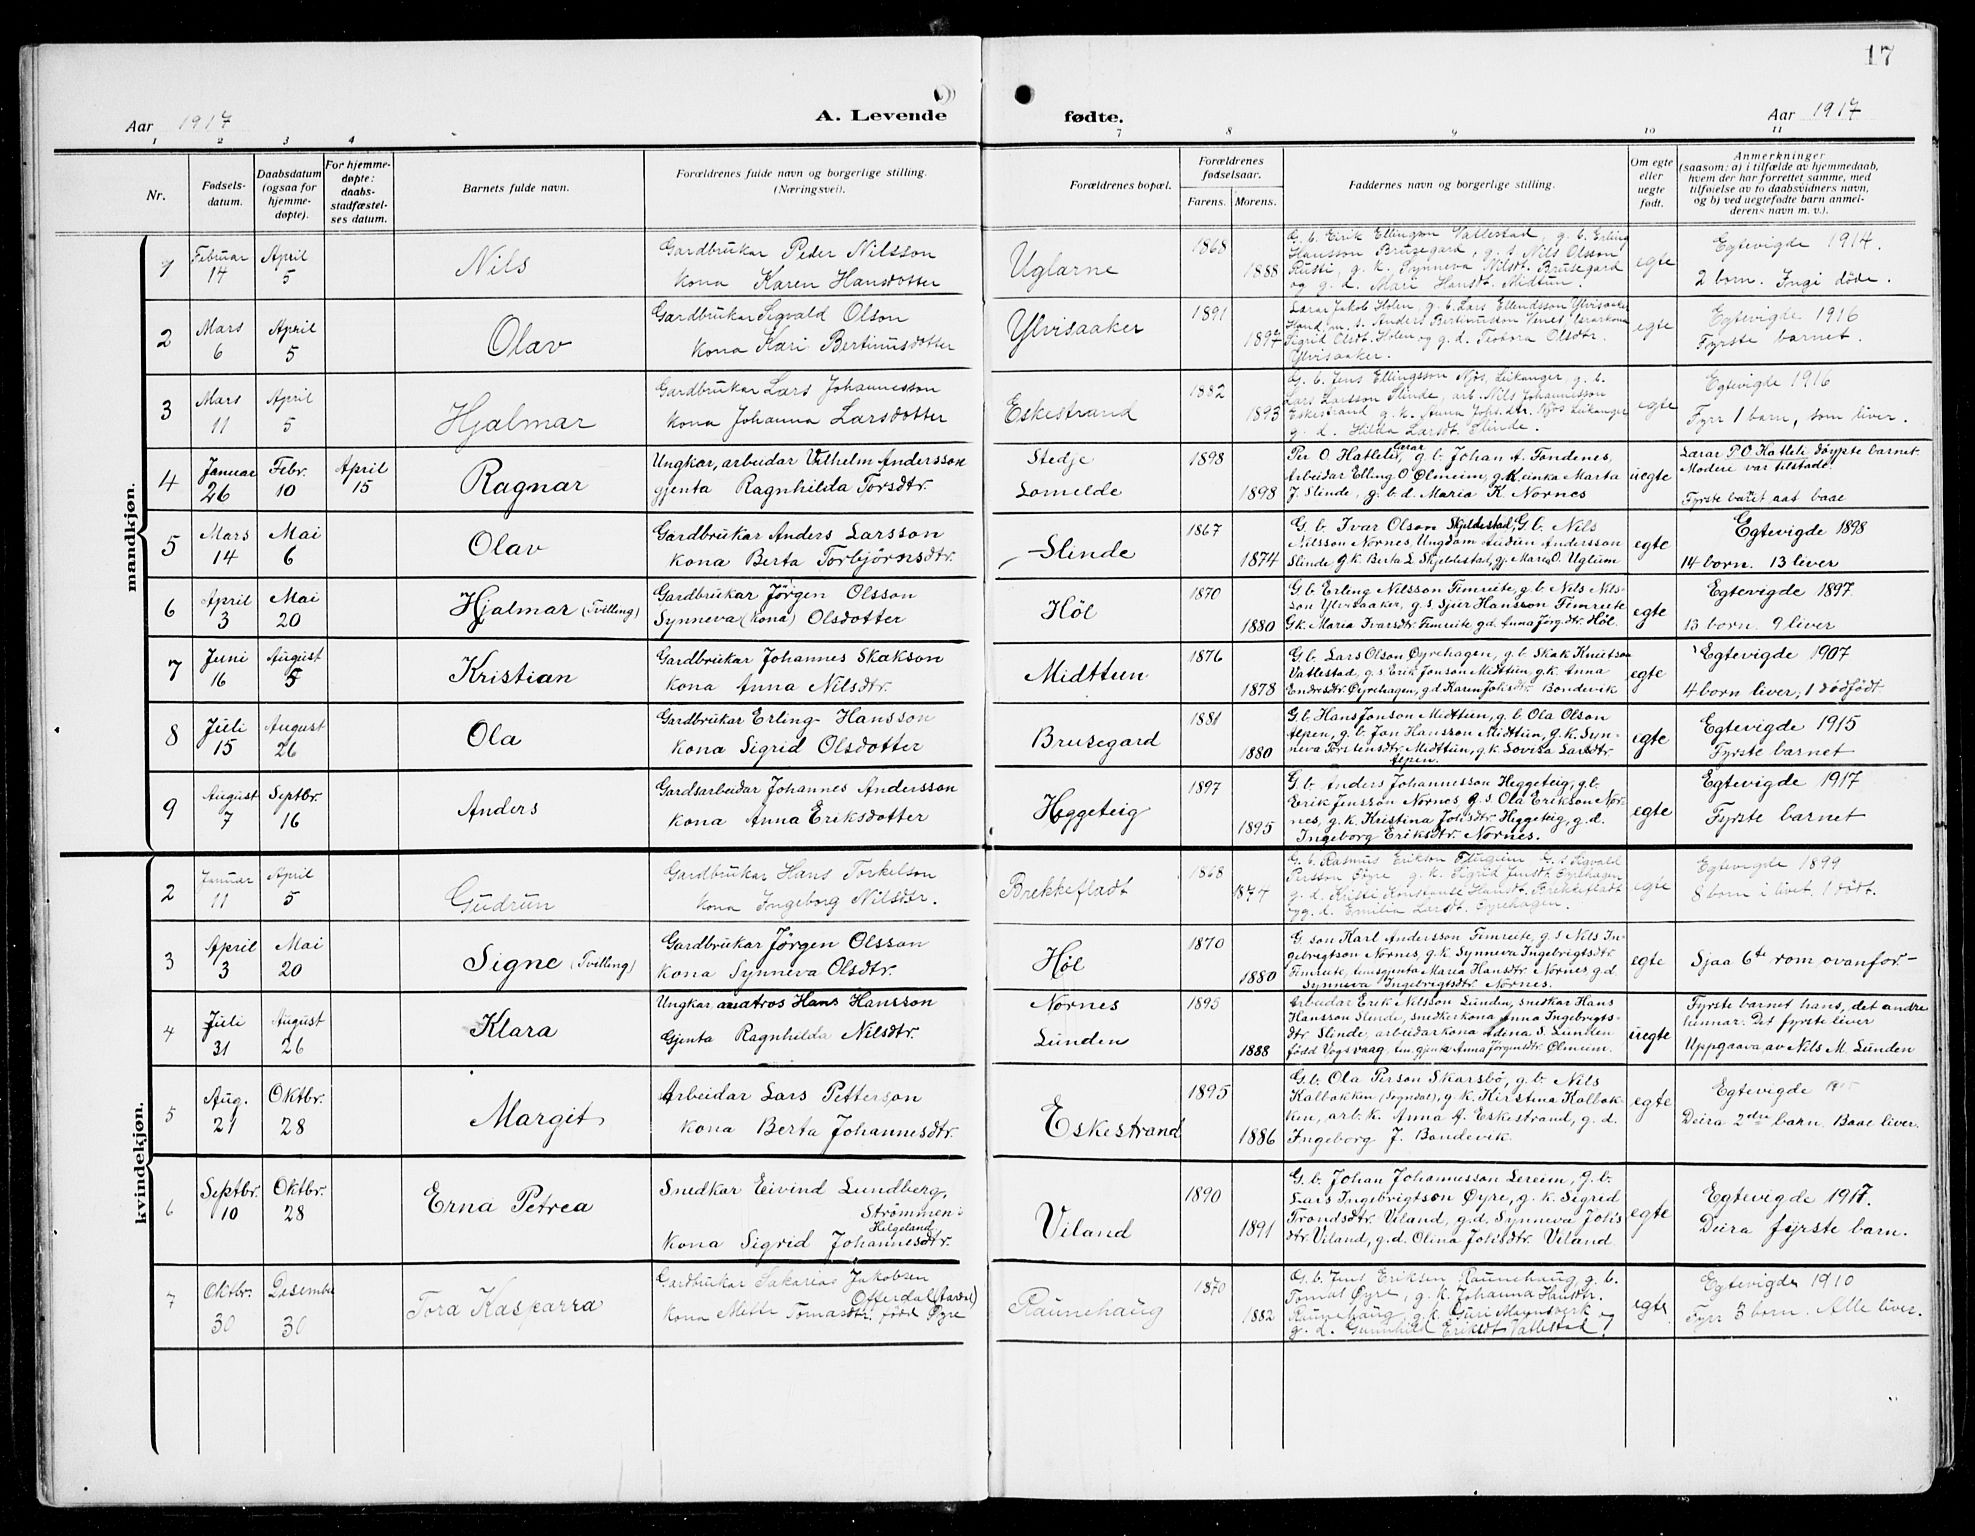 17
Aar 1917
A. Levende fødte.
Aar 1917
1 2 3 4 7 8 9 10 11
Nr.
Fødsels-datum.
Daabsdatum (ogsaa for hjemme-døpte).
For hjemme-døpte: daabs-stadfæstel-ses datum.
Barnets fulde navn.
Forældrenes fulde navn og borgerlige stilling. (Næringsvei).
Forældrenes bopæl.
Forældrenes fødselsaar.
Farens. Morens.
Faddernes navn og borgerlige stilling.
Om egte eller uegte født.
Anmerkninger
(saasom: a) i tilfælde av hjemmedaab,
hvem der har forrettet samme, med
tilføielse av to daabsvidners navn,
og b) ved uegtefødte barn anmel-
derens navn m. v.).
mandkjøn.
1 Februar 14 April 5 Nils
Gardbrukar Peder Nilsson
kona Karen Hansdotter
Uglarne 1868 1888
G. b. Erik Ellingson Vallestad, g. b. Erling
Hansson Brusegard, g. s Nils Olson
Rusti, g. k. Synneva Nilsdt. Brusegard
og g. d. Mari Hansdt. Midtun.
egte
Egtevigde 1914.
2 born. Ingi døde.
2 Mars 6 April 5 Olav
Gardbrukar Sigvald Olson
kona Kari Bertinusdotter
Ylvisaaker 1891 1897
Lærar Jakob Holen, g. b. Lars Ellendsson Ylvisaaker
Hand m. s. Anders Bertinusson Venes, lærarkona
Sigrid Olsdt. Holen og g. d. Teodora Olsdtr.
Ylvisaaker.
egte
Egtevigde 1916
Fyrste barnet.
3 Mars 11 April 5 Hjalmar
Gardbrukar Lars Johannesson
kona Johanna Larsdotter
Eskestrand 1882 1893
G. b. Jens Ellingsson Njøs, Leikanger g. b.
Lars Larsson Slinde, arb. Nils Johannesson
Eskestrand g. k. Anna Johs.dtr. Njøs Leikanger
g. d. Hilda Larsdt. Slinde.
egte
Egtevigde 1916
Fyrr 1 barn, som liver.
4 Januar 26 Febr. 10 April 15 Ragnar
Ungkar, arbeidar Vilhelm Andersson
gjenta Ragnhilda Torsdtr.
Stedje
Lomelde 1898 1898
Per O Hatlelid, lærar g. b. Johan A. Tondenes,
Arbeidar Elling O Ølmeim, g. k. einka Marta
J. Slinde, g. b. d. Maria K Nornes
uegte
Lærar P. O Hatleli døypte barnet.
Moderi var tilstade.
Fyrste baret aat baae
5 Mars 14 Mai 6 Olav
Gardbrukar Anders Larsson
kona Berta Torbjørnsdtr.
Slinde 1867 1874
G. b. Ivar Olson Skjeldestad, G. b. Nils
Nilsson Nornes, Ungdom Audun Andersson
Slinde, g. k. Berta L Skjeldestad, gj. Maria O. Uglum
egte
Egtevigde 1898
14 born. 13 liver
6 April 3 Mai 20 Hjalmar (Tvilling)
Gardbrukar Jørgen Olsson
Synneva (kona) Olsdotter
Høl 1870 1880
G. b. Erling Nilsson Fimreite, g. b. Nils Nils-
son Ylvisaaker, g. s Sjur Hansson Fimreite
G. k. Maria Ivarsdtr. Fimreite, g. d. Anna Jørg.dtr. Høl
egte
Egtevigde 1897.
13 born. 9 liver
7 Juni 16 August 5 Kristian
Gardbrukar Johannes Skakson
kona Anna Nilsdtr.
Midttun 1876 1878
G. b. Lars Olson Øyrehagen, g. b. Skak Knutson
Vatlestad, g. s Erik Jonson Midttun, g. k. Anna
Endresdtr. Øyrehagen, g. d. Karen Johsdtr. Bondevik
egte
Egtevigde 1907
4 born liver, 1 dødfødt
8 Juli 15 August 26 Ola
Gardbrukar Erling Hansson
kona Sigrid Olsdotter
Brusegard 1881 1880
G. b. Hans Jonson Midttun, g. b. Ola Olson
Alpen, g. b. Jon Hansson Midttun, g. k. Syn-
neva Torstensdtr. Midttun, g. k. Lovisa Larsdtr
Alpen.
egte
Egtevigde 1915
Fyrste barnet
9 August 7 Septbr. 16 Anders
Gardsarbeidar Johannes Andersson
kona Anna Eriksdotter
Heggeteig 1897 1895
G. b. Anders Johannesson Heggeteig, g. b.
Erik Jensson Nornes, g. s. Ola Erikson Nor-
nes, g. k. Kristina Johsdtr. Heggeteig, g. d.
Ingeborg Eriksdtr. Nornes.
egte
Egtevigde 1917
Fyrste barnet
kvindekjøn.
2 Januar 11 April 5 Gudrun
Gardbrukar Hans Torkelson
kona Ingeborg Nilsdtr.
Brekkefladt 1868 1877
G. b. Rasmus Erikson Flugeim, G. s Sigvald
Persson Øyre g. k. Sigrid Jensdt. Øyrehagen
g. d. Kristi Konstanse Hansdt. Brekkefladt
og g. d. Emilia Larsdt. Øyrehagen.
egte
Egtevigde 1899
8 born i livet. 1 dødt.
3 April 3 Mai 20 Signe (Tvilling)
Gardbrukar Jørgen Olsson
kona Synneva Olsdtr.
Høl 1870 1880
G. son Karl Andersson Fimreite, g. s Nils In-
gebrigtson Nornes, g. k. Synneva Ingebrigtsdtr
Fimreite, tenestgjenta Maria Hansdtr. Nornes g. d.
Synneva Ingebrigtsdtr. Nornes.
egte
Sjaa 6te rom ovanfor.
4 Juli 31 August 26 Klara
Ungkar, matros Hans Hansson
Gjenta Ragnhilda Nilsdtr.
Nornes
Lunden 1895 1888
Arbeidar Erik Nilsson Lunden, snedkar Hans
Hansson Slinde, snedkerkona Anna Ingebrigts-
dtr Slinde, arbeidarkona Adena S. Lunden
fødd Vogsvaag, ten. gjenta Anna Jørgensdtr. Ølmeim.
uegte
Fyrste barnet hans, det andre
hennar. Det fyrste liver
Uppgaava av Nils M. Lunden
5 Aug. 21 Oktbr. 28 Margit
Arbeidar Lars Petterson
kona Berta Johannesdtr.
Eskestrand 1895 1886
G. b. Ola Person Skarsbø, g. b. Nils
Kalbakken (Sogndal), g. k. Kirstina Kalbak-
ken, arb. k. Anna A. Eskestrand, g. d.
Ingeborg J. Bondevik.
egte
Egtevigde 1915
Deira 2dre barn. Baae liver.
6 Septbr. 10 Oktbr. 28 Erna Petrea
Snedkar Eivind Lundberg,
Strømmen i
Helgeland
kona Sigrid Johannesdtr.
Viland 1890 1891
G. b. Johan Johannesson Lereim, g. b.
Lars Ingebrigtson Øyre, g. k. Sigrid
Trondsdtr. Viland, g. d. Synneva Johs
dtr. Viland, g. d. Olina Johsdtr. Viland
egte
Egtevigde 1917.
Deira fyrste barn.
7 Oktbr. 30 Desember 30 Tora Kasparra
Gardbrukar Sakarias Jakobsen
Offerdal (Aardal)
kona Mette Tomasdtr. fødd Øyre
Raunehaug 1870 1882
G. b. Jens Eriksen Raunehaug, g. b.
Tomas Øyre, g. k. Johanna Hansdtr.
Raunehaug g. k. Guri
g. d. Gunnhild Eriksdt Vatlestad
egte
Egtevigde 1910
Fyrr 3 born. Alle liver.